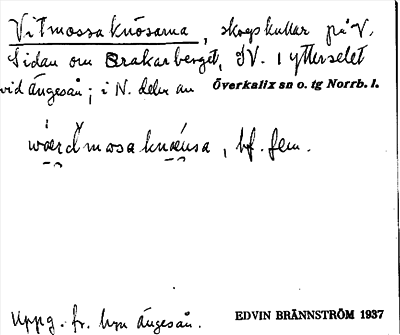 Vitmossaknösarna, skogskullar på V.
Sidan om Brakarberget, SV. i ytterselet
vid Ängesån; i N. delen av Överkalix sn o. tg Norrb. l.
mosa , bf. fem.
Uppg. fr. byn Ängesån. EDVIN BRÄNNSTRÖM 1937